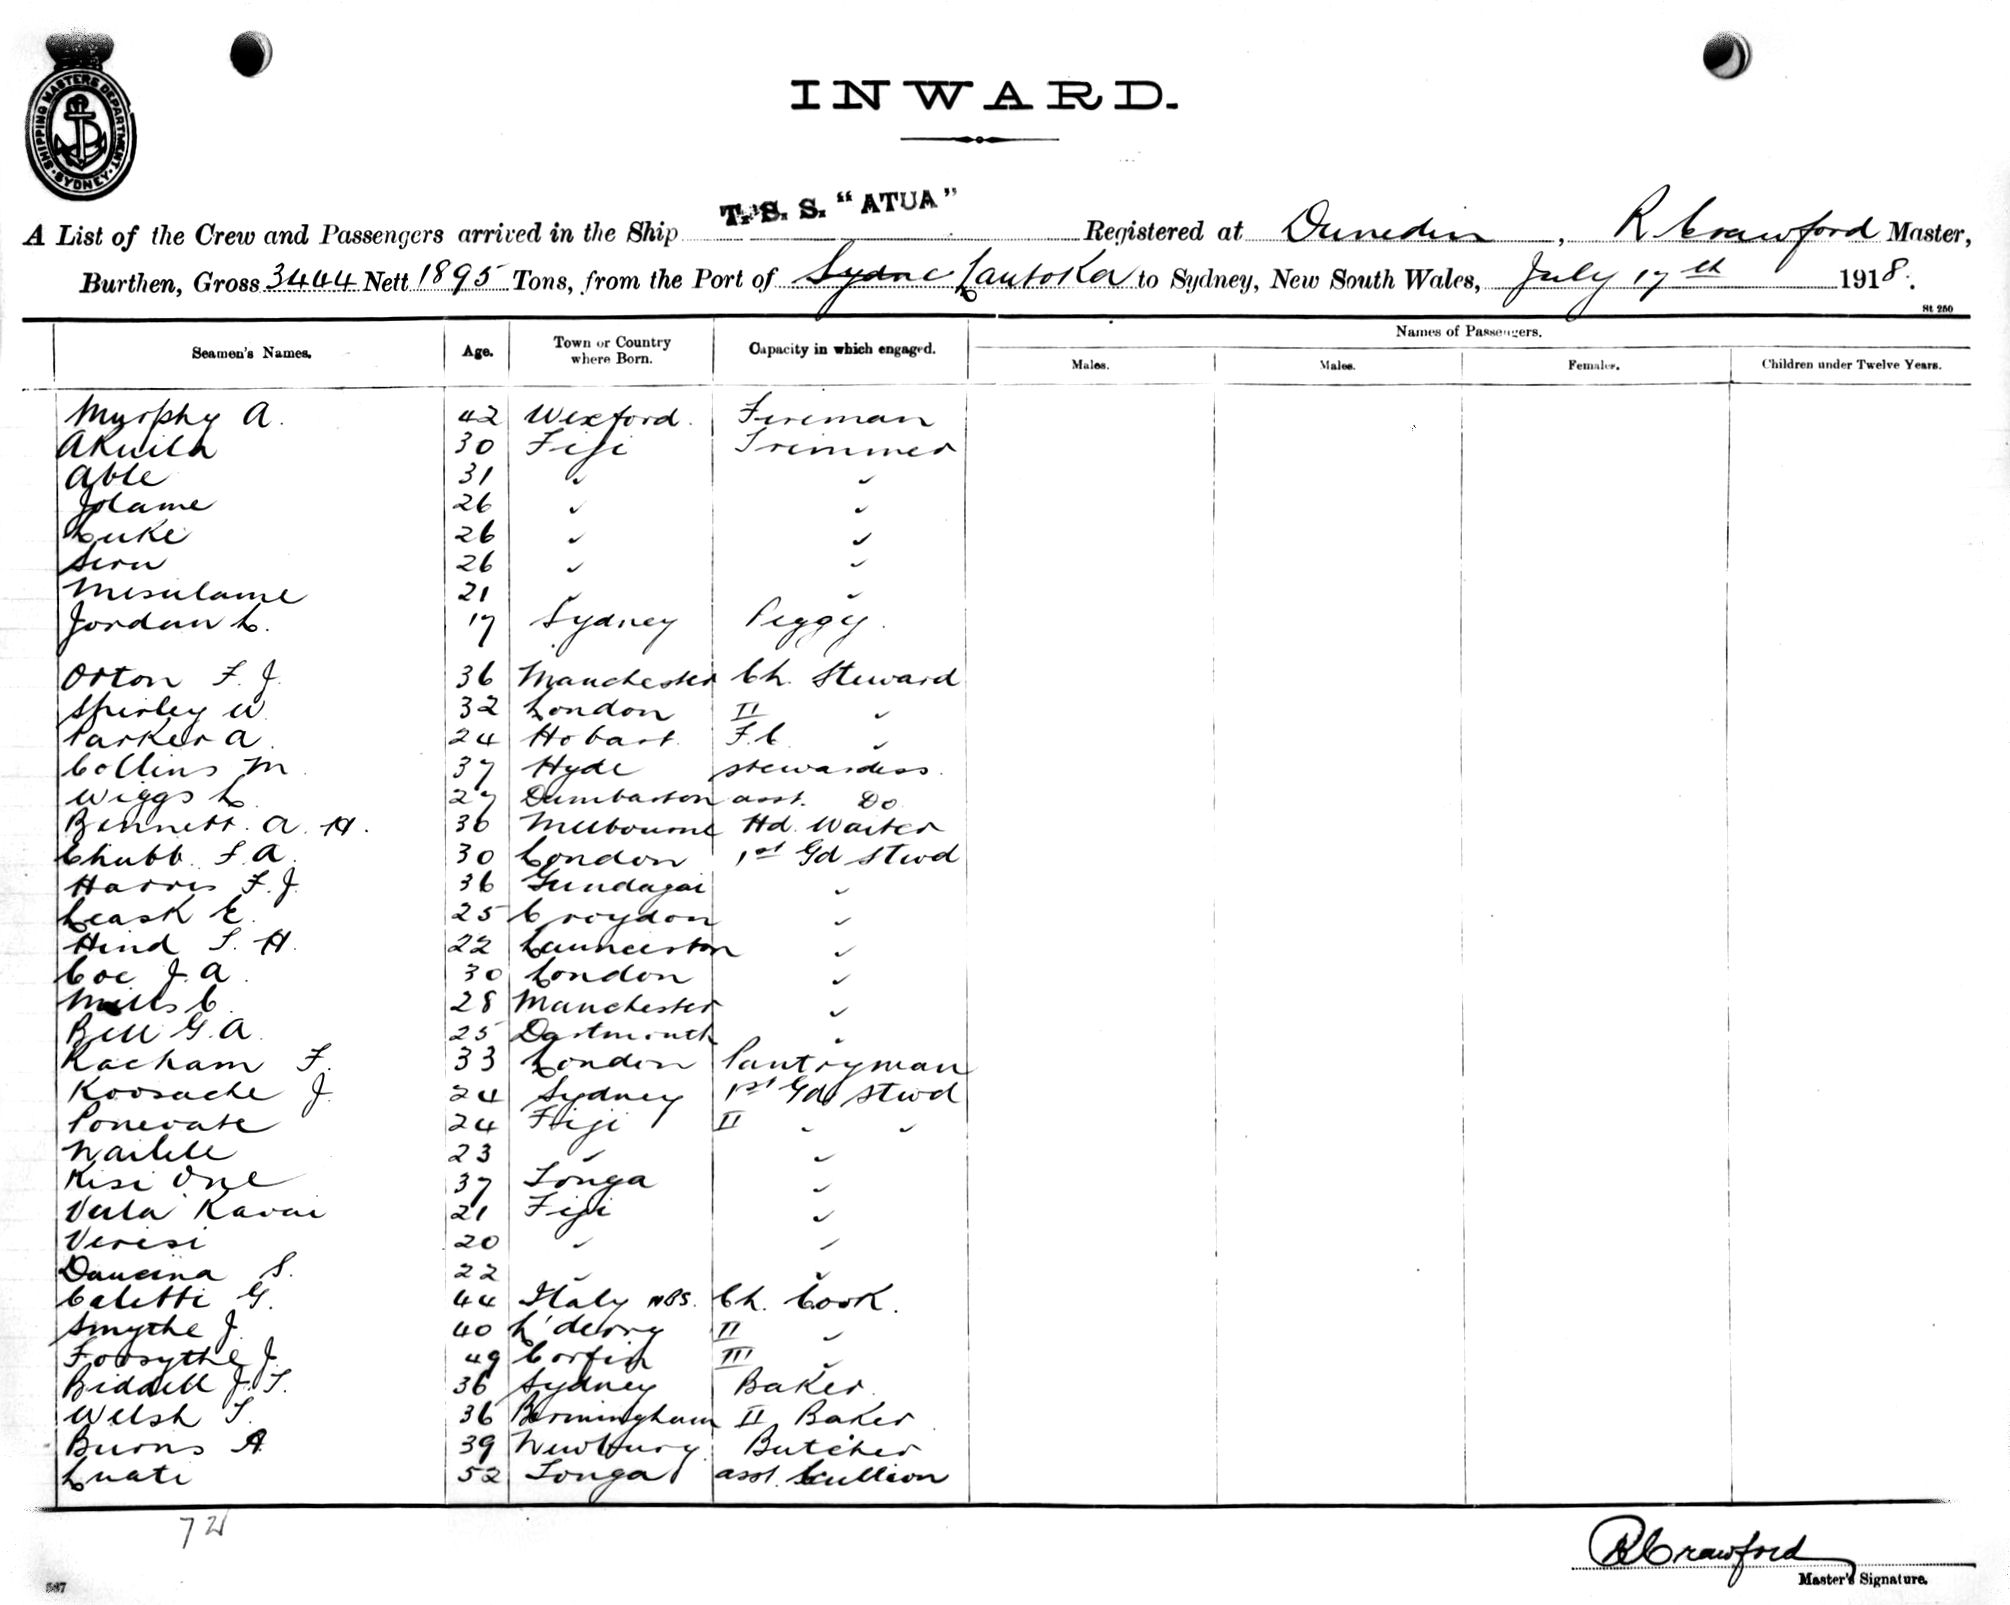 SHIPPING MASTERS DEPARTMENT
SYDNEY
INWARD.
A List of the Crew and Passengers arrived in the Ship T. S. S. "ATUA" Registered at Dunedin, R Crawford Master,
Burthen, Gross 3444 Nett 1895 Tons, from the Port of Lautoka to Sydney, New South Wales, July 17th 1918.
St 250
Seamen's Names. Age. Town or Country where Born. Capacity in which engaged. Names of Passengers.
Males. Males. Females. Children under Twelve Years.
Murphy A. 42 Wexford. Fireman
Akuila 30 Fiji Trimmer
Able 31 " "
Jolame 26 " "
Luke 26 " "
Seru 26 " "
Mesulame 21 " "
Jordan L. 17 Sydney Peggy.
Orton F. J. 36 Manchester Ch. Steward
Spirley W 32 London II "
Parker A. 24 Hobart. F.C. "
Collins M 37 Hyde Stewardess.
Wiggs L. 27 Dumbarton asst. Do
Bennett. A. H. 36 Melbourne Hd. Waiter
Chubb. F. A. 30 London 1st Gd Stwd
Harris F. J. 36 Gundagai "
Leask E. 25 Croydon "
Hind T. H. 22 Launceston "
Coe J. A 30 London "
Mills C. 28 Manchester "
Bell G. A. 25 Dartmouth "
Racham F. 33 London Pantryman
Koosache J. 24 Sydney 1st Gd Stwd
Ponevate 24 Fiji II " "
Nailele 23 " "
Kisi One 37 Tonga "
Veila Kavai 21 Fiji "
Veresi 20 " "
Daucina S. 22 " "
Caletti G. 44 Italy NBS. Ch. Cook.
Smythe J. 40 L'derry II "
Forsythe J. 49 Corfin III "
Biddell J. T. 36 Sydney Baker.
Welsh T. 36 Birmingham II Baker
Burns A 39 Newbury Butcher
Luati 52 Tonga asst. Scullion
72
R Crawford
Master's Signature.
587